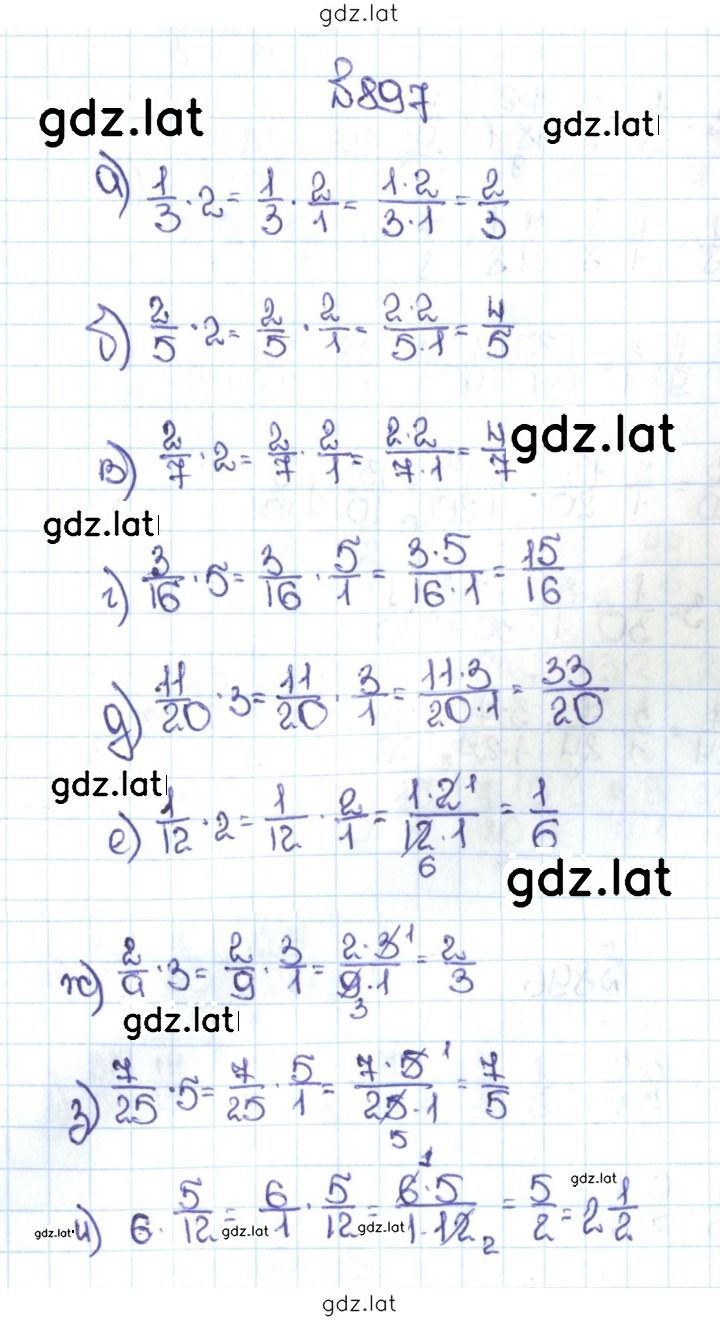 gdz.lat
№897
gdz.lat gdz.lat
а) 1/3 · 2 = 1/3 · 2/1 = 1·2/3·1 = 2/3
б) 2/5 · 2 = 2/5 · 2/1 = 2·2/5·1 = 4/5
в) 2/7 · 2 = 2/7 · 2/1 = 2·2/7·1 = 4/7 gdz.lat
gdz.lat
г) 3/16 · 5 = 3/16 · 5/1 = 3·5/16·1 = 15/16
д) 11/20 · 3 = 11/20 · 3/1 = 11·3/20·1 = 33/20
gdz.lat
е) 1/12 · 2 = 1/12 · 2/1 = 1·2 1/12·1 6 = 1/6
gdz.lat
ж) 2/9 · 3 = 2/9 · 3/1 = 2·3 1/9·1 3 = 2/3
gdz.lat
з) 7/25 · 5 = 7/25 · 5/1 = 7·5 1/25·1 5 = 7/5
gdz.lat
gdz.lat и) 6 · 5/12 = gdz.lat 6/1 · 5/12 = gdz.lat 1 6·5/1·12 2 = 5/2 = 2 1/2
gdz.lat